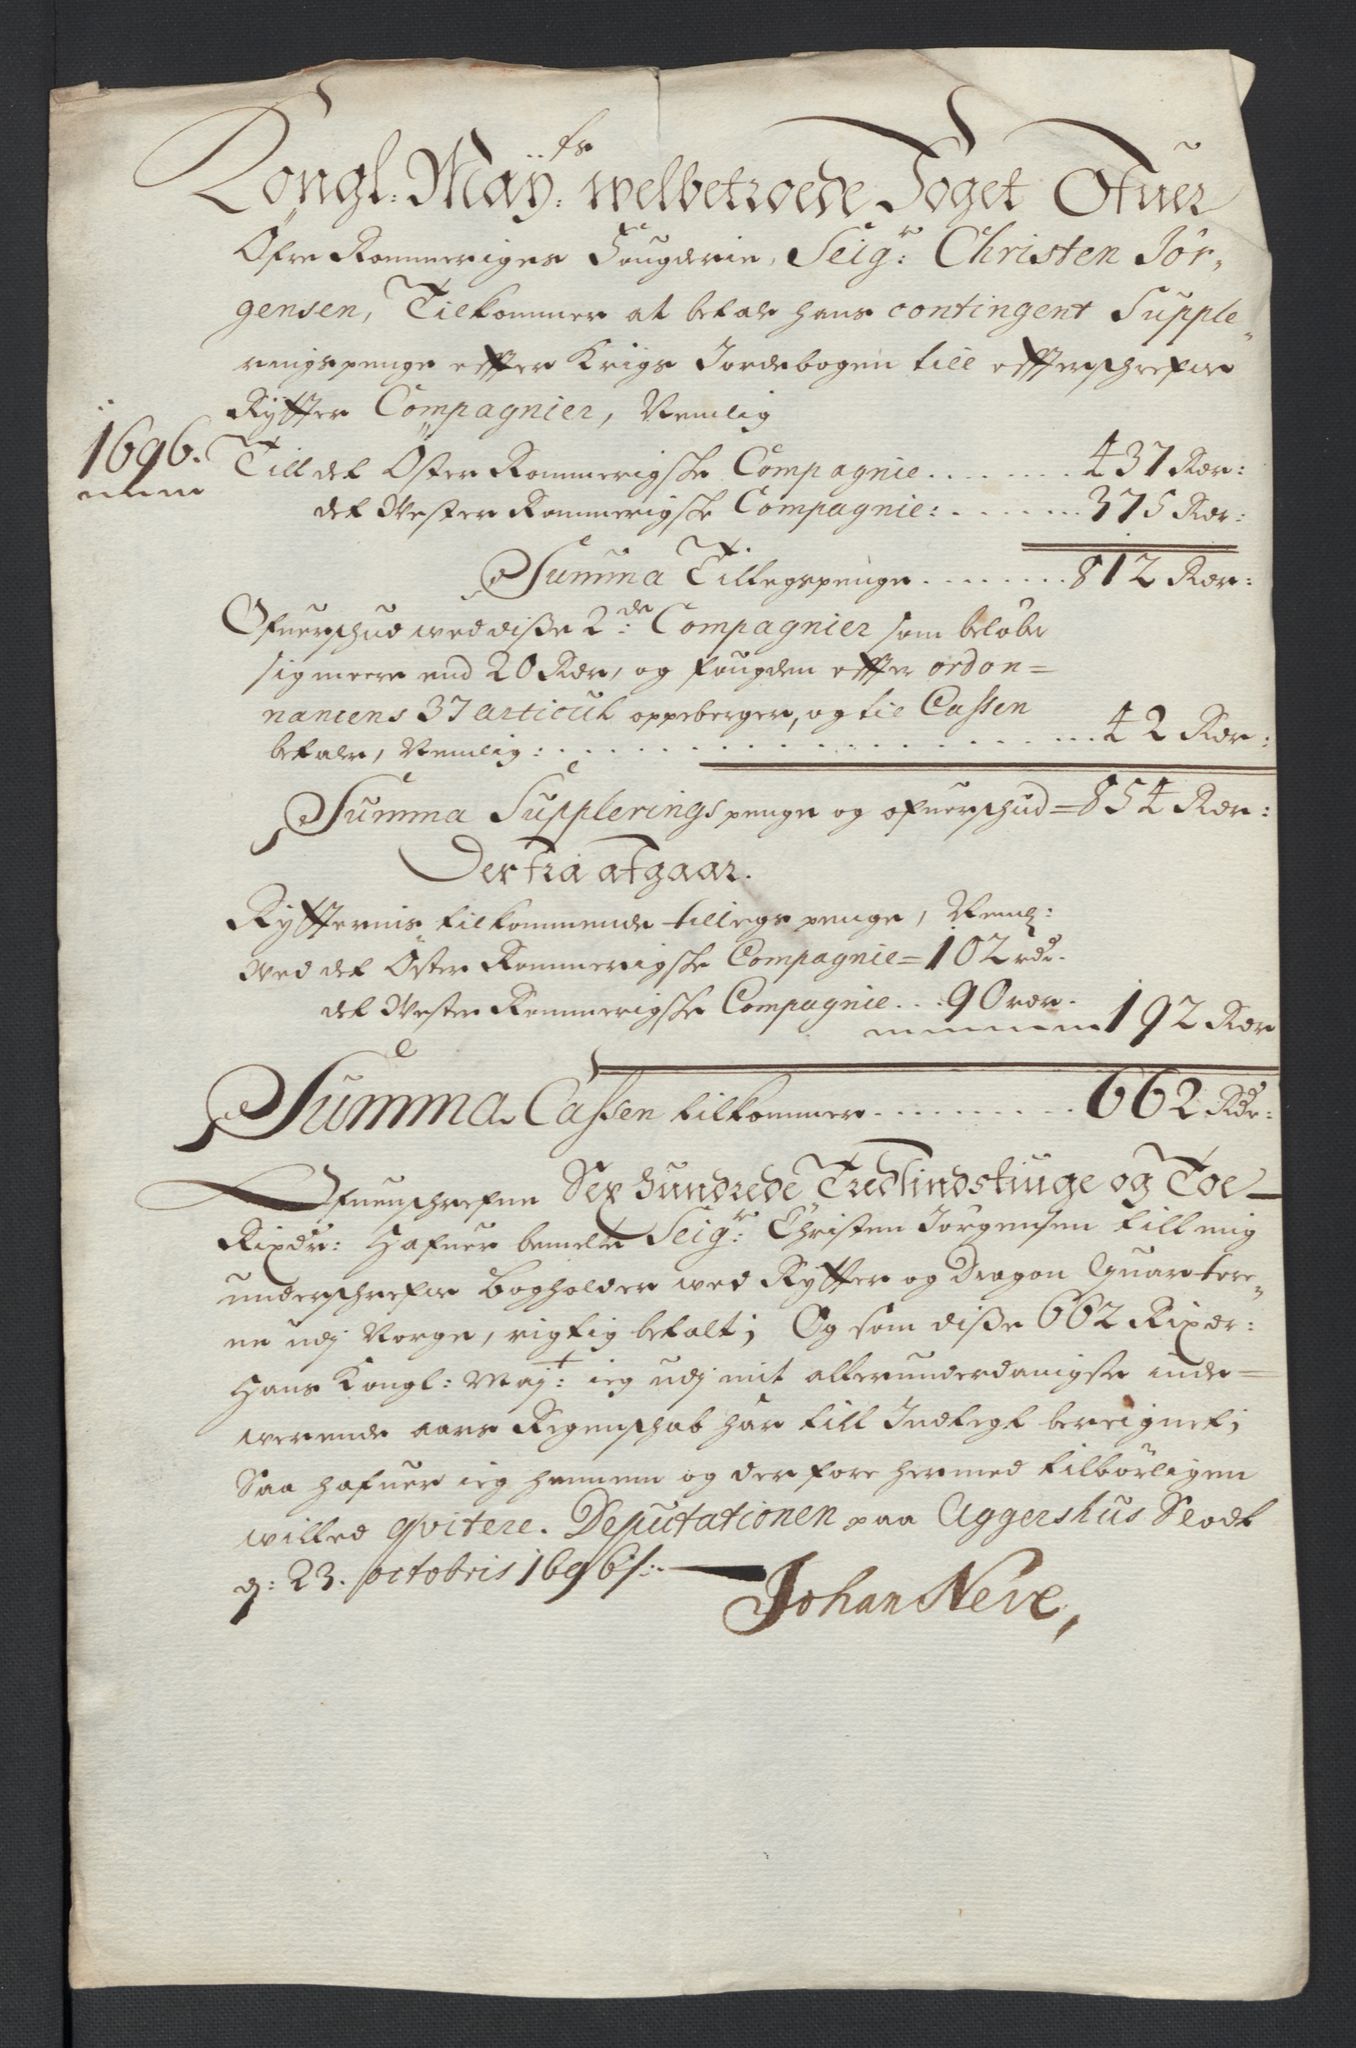 Kongl: Maÿ:ts welbetroede Foget Ofuer
Öfre Rommeriges Fougderie, Seig:r Christen Jör-
gensen, Tilkommer at betale hans contingent Supple-
rings penge effter Krigs Jordebogen till effterschrefne
Rÿtter Compagnier, Nemlig
1696.
Till det Öster Rommerigsche Compagnie ....... 437 Rdr:
det Wester Rommerigsche Compagnie: ....... 375 Rdr:
Summa Tillegspenge ........ 812 Rdr:
Ofuerschud wed diße 2:de Compagnier som belöber
sig meere end 20 Rdr, og fougden effter ordon=
nancens 37 articul oppeberger, og til Cassen
betaler, Nemlig: .................... 42 Rdr:
Summa Supplerings penge og ofuerschud = 854 Rdr:
Derfra afgaar.
Rÿtternis tilkommende tillegs penge, Neml:
Wed det Öster Rommerigsche Compagnie = 102 rdr.
det Wester Rommerigsche Compagnie ... 90 rdr.
192 Rdr
Summa Cassen tilkommer .......... 662 Rdr:
Ofuenschrefne Sex Hundrede Tredsindstiuge og Toe
Rixdr: Hafuer bemelte Seig:r Christen Jörgensen till mig
underschrefne Bogholder wed Rÿtter og Dragon Quartere-
ne udj Norge, rigtig betalt; Og som diße 662 Rixdr:
Hans Kongl: Maj:t ieg udj mit allerunderdanigste inde=
werende aars Regenschab har till Indtegt bereignet;
Saa hafuer ieg hannem og derfore hermed tilbörligen
willed qvitere. Deputationen paa Aggershus Slodt
d: 23. octobris 1696 /:
Johan Neve,